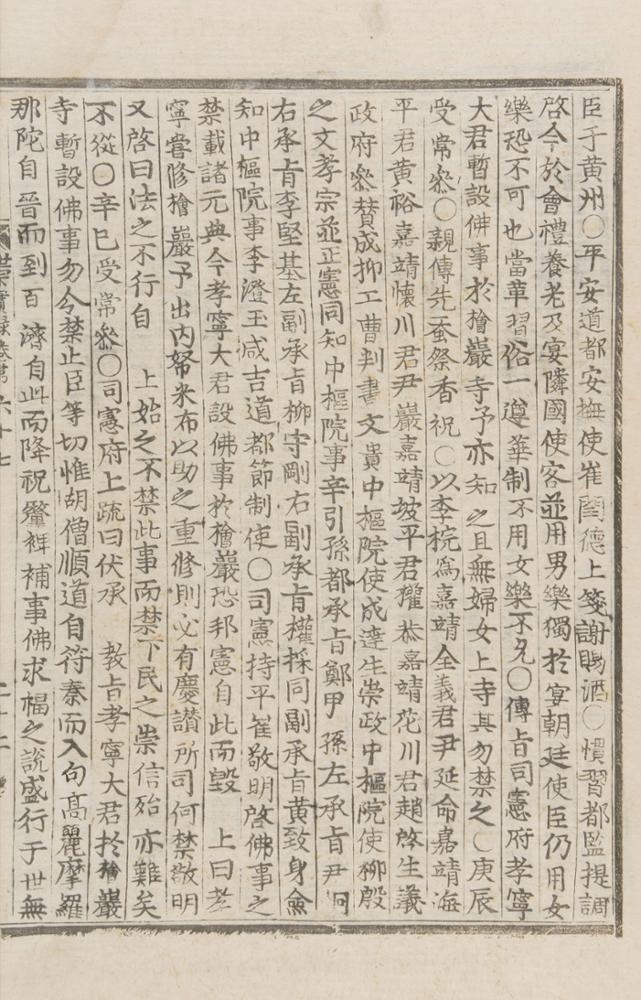 臣于黄州○平安道都安撫使崔閏德上箋謝賜酒○慣習都監提調
啓今於會禮養老及宴隣國使客並用男樂獨於宴朝廷使臣仍用女
樂恐不可也當革習俗一遵華制不用女樂不允○傳旨司憲府孝寧
大君暫設佛事於檜巖寺予亦知之且無婦女上寺其勿禁之○庚辰
受常參○親傳先蚕祭香祝○以李梡爲嘉靖全義君尹延命嘉靖海
平君黄裕嘉靖懐川君尹巖嘉靖坡平君權恭嘉靖花川君趙啓生議
政府參賛成抑工曹判書文貴中樞院使成達生崇政中樞院使柳殷
之文孝宗並正憲同知中樞院事辛引孫都承旨鄭甲孫左承旨尹
右承旨李堅基左副承旨柳守剛右副承旨權採同副承旨黄致身僉
知中樞院事李澄玉咸吉道都節制使○司憲持平崔敬明啓佛事之
禁載諸元典今孝寧大君設佛事於檜巖恐邦憲自此而毁 上曰孝
寧嘗修檜巖予出内帑米布以助之重修則必有慶讃所司何禁敬明
又啓曰法之不行自 上始之不禁此事而禁下民之崇信殆亦難矣
不從○辛巳受常參○司憲府上疏曰伏承 教旨孝寧大君於檜巖
寺暫設佛事勿令禁止臣等切惟胡僧順道自符秦而入句高麗摩羅
那陀自晉而到百濟自此而降祝釐裨補事佛求福之説盛行于世無
世宗實録卷第六十七